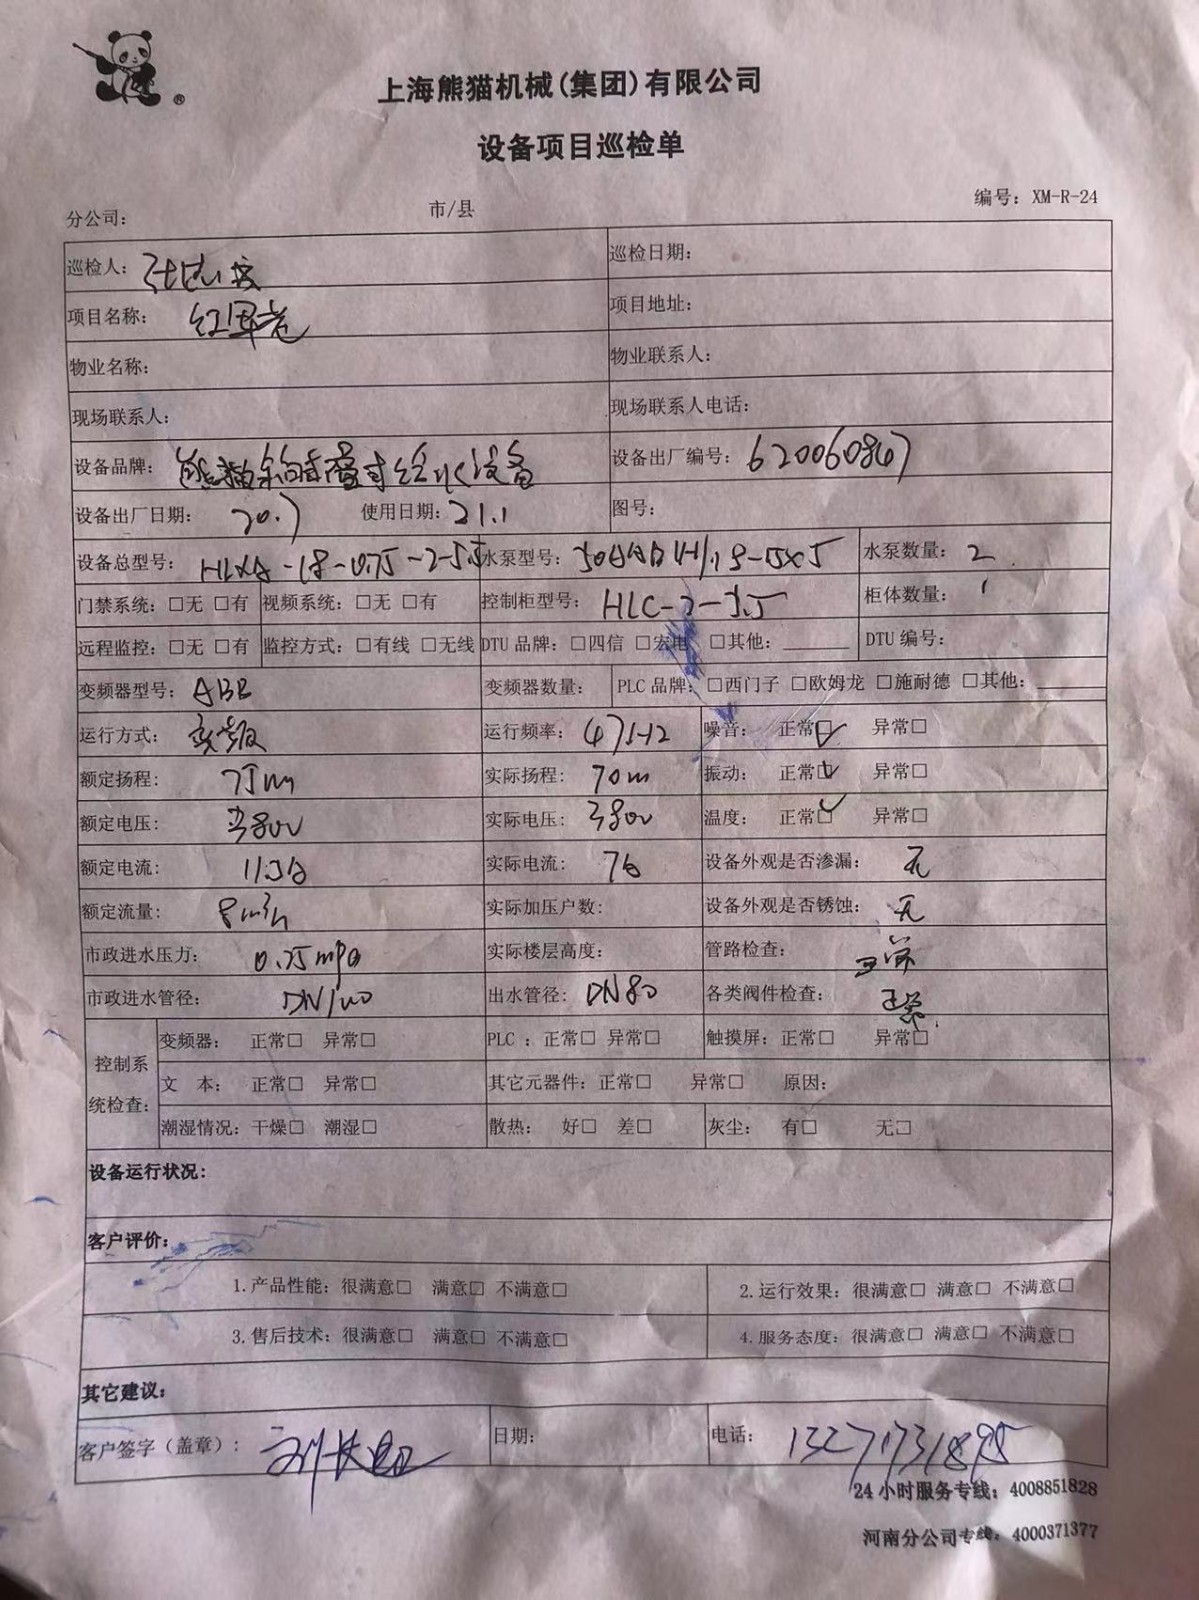 上海熊猫机械(集团)有限公司
设备项目巡检单
分公司: 市/县 编号: XM-R-24
巡检人: 巡检日期:
项目名称: 项目地址:
物业名称: 物业联系人:
现场联系人: 现场联系人电话:
设备品牌: 熊猫 给水设备 设备出厂编号: 620060867
设备出厂日期: 20.7 使用日期: 21.1 图号:
设备总型号: 水泵型号: 水泵数量: 2
门禁系统: □无 □有 视频系统: □无 □有 控制柜型号: HLC-2-5.5 柜体数量: 1
远程监控: □无 □有 监控方式: □有线 □无线 DTU 品牌: □四信 □宏电 □其他: DTU 编号:
变频器型号: ABB 变频器数量: PLC 品牌: □西门子 □欧姆龙 □施耐德 □其他:
运行方式: 运行频率: 47HZ 噪音: 正常☑ 异常□
额定扬程: 75m 实际扬程: 70m 振动: 正常☑ 异常□
额定电压: 380v 实际电压: 380v 温度: 正常☑ 异常□
额定电流: 实际电流: 7A 设备外观是否渗漏: 无
额定流量: 8m³/h 实际加压户数: 设备外观是否锈蚀: 无
市政进水压力: 0.25mpa 实际楼层高度: 管路检查: 正常
市政进水管径: DN100 出水管径: DN80 各类阀件检查: 正常
控制系统检查: 变频器: 正常□ 异常□ PLC : 正常□ 异常□ 触摸屏: 正常□ 异常□
文 本: 正常□ 异常□ 其它元器件: 正常□ 异常□ 原因:
潮湿情况: 干燥□ 潮湿□ 散热: 好□ 差□ 灰尘: 有□ 无□
设备运行状况:
客户评价:
1.产品性能: 很满意□ 满意□ 不满意□ 2.运行效果: 很满意□ 满意□ 不满意□
3.售后技术: 很满意□ 满意□ 不满意□ 4.服务态度: 很满意□ 满意□ 不满意□
其它建议:
客户签字(盖章): 日期: 电话: 13271731895
24 小时服务专线: 4008851828
河南分公司专线: 4000371377